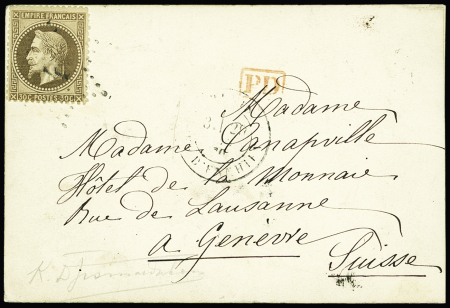 EMPIRE FRANÇAIS
30C POSTES 30C
P.D.
Madame
Madame Canapville
Hôtel de la Monnaie
rue de Lausanne
a Genèvre
Suisse